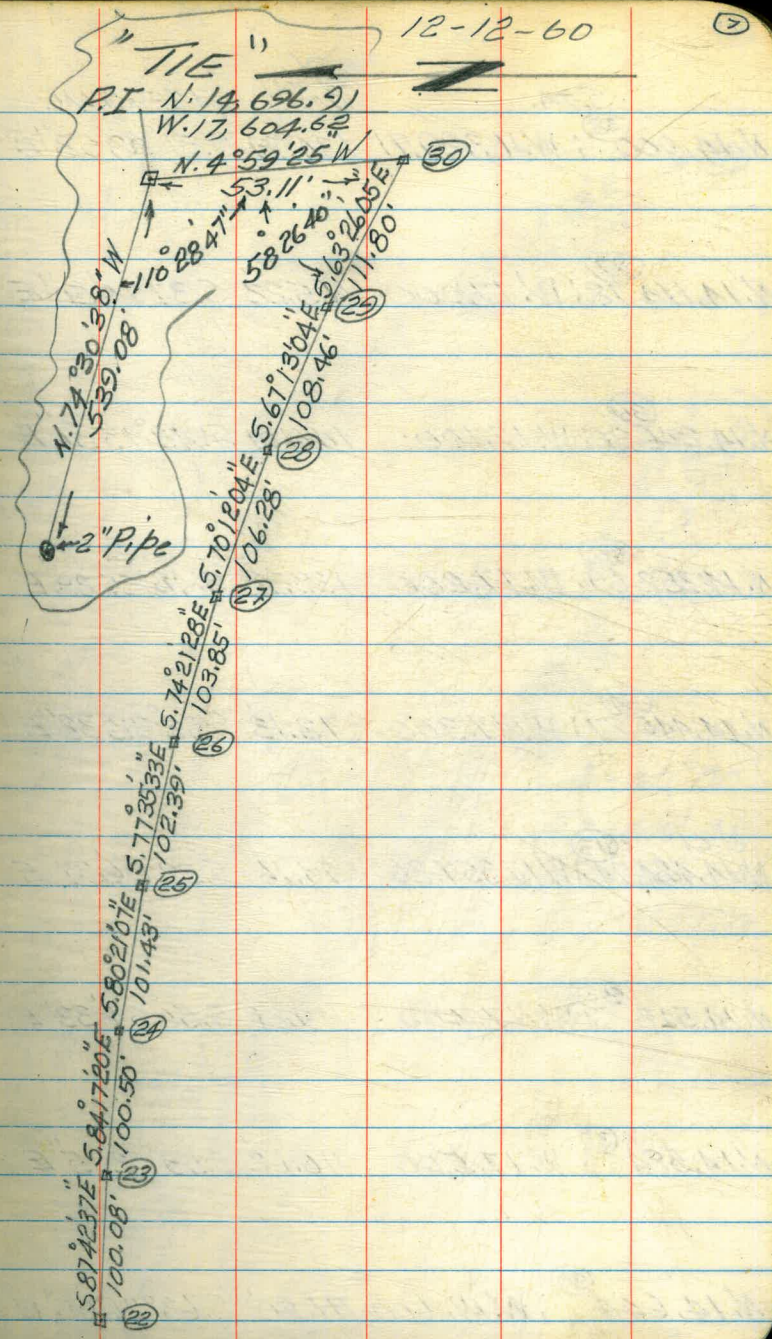 12-12-60
7
"TIE"
P.I N. 14,696.91
W. 17,604.62
N. 4°59'25"W
53.11'
30
110°28'47"
58°26'40"
N. 74°30'38"W
539.08'
2" Pipe
S. 63°26'05"E
111.80'
29
S. 67°13'04"E
108.46'
28
S. 70°12'04"E
106.28'
27
S. 74°21'28"E
103.85'
26
S. 77°35'33"E
102.39'
25
S. 80°21'07"E
101.43'
24
S. 84°17'20"E
100.50'
23
S. 87°42'37"E
100.08'
22